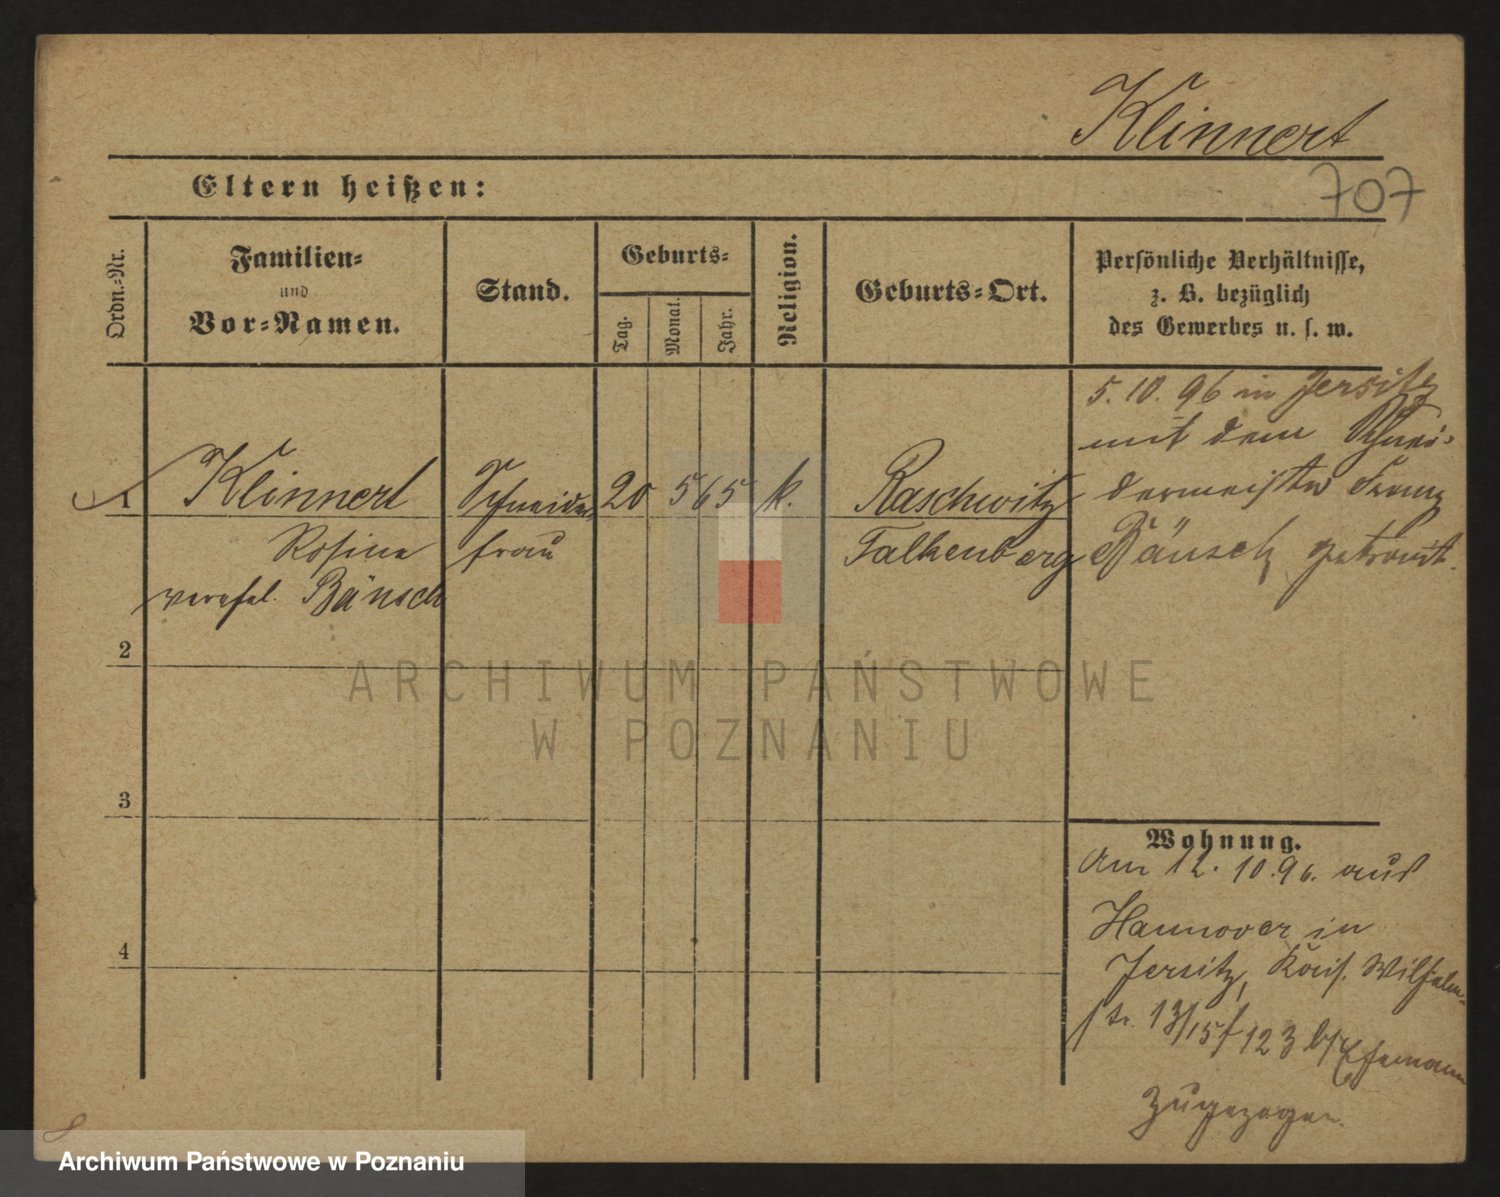 Klinnert
Eltern heißen:
707
Ordn.-Nr.
Familien-
und
Vor-Namen.
Stand.
Geburts-
Tag.
Monat.
Jahr.
Religion.
Geburts-Ort.
Persönliche Verhältnisse,
z. B. bezüglich
des Gewerbes u. s. w.
5. 10. 96 in Jersitz
mit dem Schnei-
dermeister Franz
Bänsch getraut.
1 Klinnert Schneider 20 5 65 k. Raschwitz
Rosine frau Falkenberg
verehel. Bänsch
2
3
4
Wohnung.
Am 12. 10. 96. aus
Hannover in
Jersitz, Kais. Wilhelm-
str. 13/15 f 123 b/ Ehemann
zugezogen.
ARCHIWUM PAŃSTWOWE
W POZNANIU
Archiwum Państwowe w Poznaniu